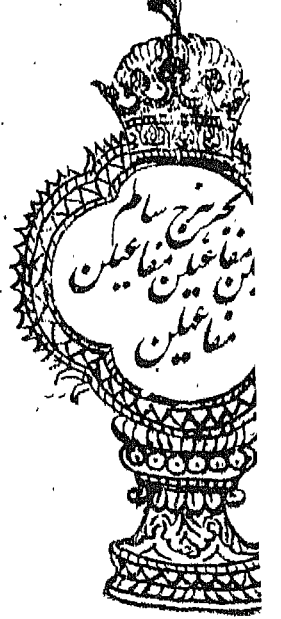 بحر ہزج سالم
مفاعیلن مفاعیلن
مفاعیلن